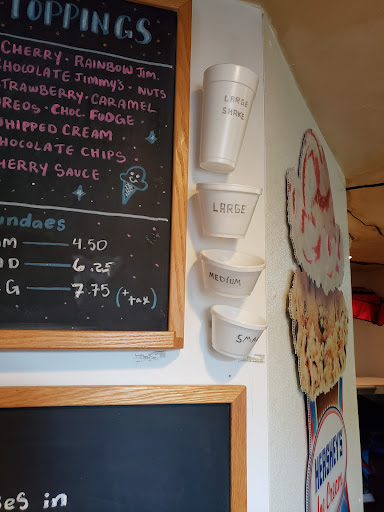 TOPPINGS
CHERRY • RAINBOW JIM.
CHOCOLATE JIMMY'S • NUTS
STRAWBERRY • CARAMEL
OREOS • CHOC. FUDGE •
WHIPPED CREAM
CHOCOLATE CHIPS
CHERRY SAUCE
undaes
M — 4.50
D — 6.25
G — 7.75 (+ tax)
es in
LARGE
SHAKE
LARGE
MEDIUM
SMA
HERSHEY'S
Ice Cream